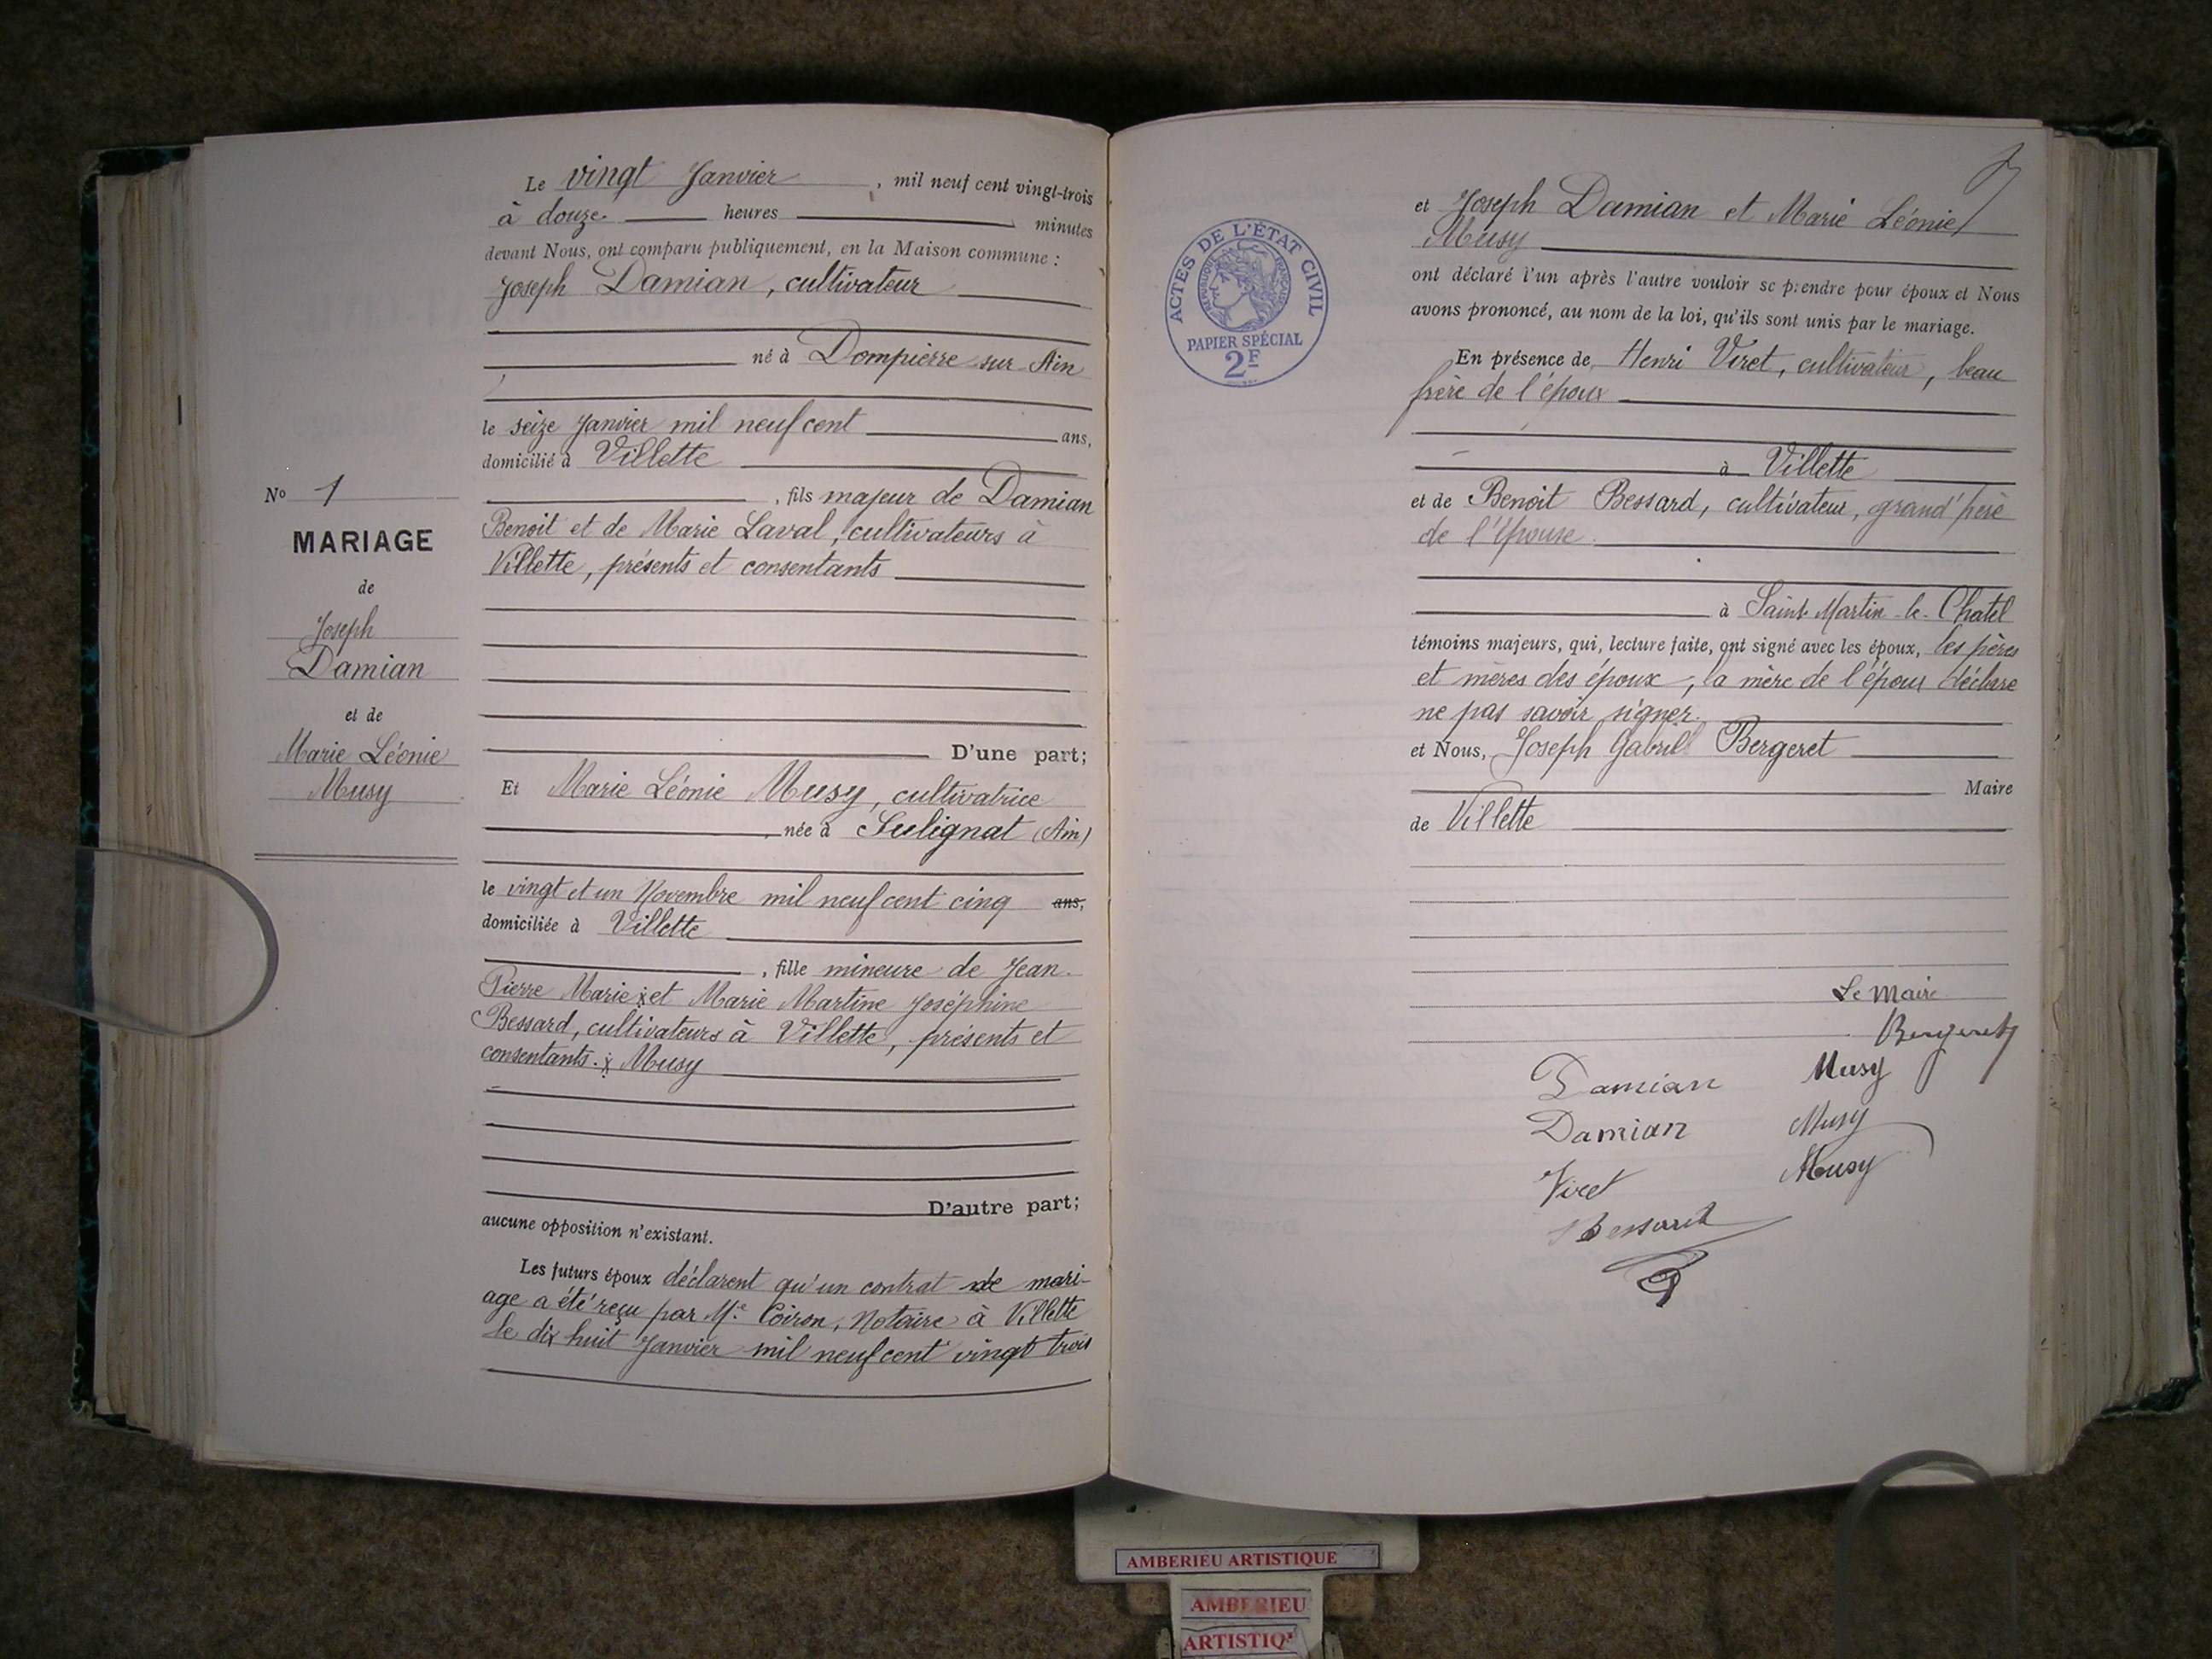 Le vingt Janvier , mil neuf cent vingt-trois
à douze heures minutes
devant Nous, ont comparu publiquement, en la Maison commune :
Joseph Damian, cultivateur
né à Dompierre-sur-Ain
le seize Janvier mil neuf cent ans,
domicilié à Villette
, fils majeur de Damian
Benoit et de Marie Laval, cultivateurs à
Villette, présents et consentants
D'une part;
Et Marie Léonie Musy, cultivatrice
née à Sulignat (Ain)
le vingt et un Novembre mil neuf cent cinq ans,
domiciliée à Villette
, fille mineure de Jean
Pierre Marie x et Marie Martine Joséphine
Bessard, cultivateurs à Villette, présents et
consentants. x Musy
D'autre part;
aucune opposition n'existant.
Les futurs époux déclarent qu'un contrat de mari-
age a été reçu par Me Coiron, Notaire à Villette
le dix huit Janvier mil neuf cent vingt trois
No 1
MARIAGE
de
Joseph
Damian
et de
Marie Léonie
Musy
et Joseph Damian et Marie Léonie
Musy
ont déclaré l'un après l'autre vouloir se prendre pour époux et Nous
avons prononcé, au nom de la loi, qu'ils sont unis par le mariage.
En présence de Henri Viret, cultivateur, beau
frère de l'époux
à Villette
et de Benoit Bessard, cultivateur, grand'père
de l'épouse
à Saint-Martin-le-Chatel
témoins majeurs, qui, lecture faite, ont signé avec les époux, les pères
et mères des époux, la mère de l'époux déclare
ne pas savoir signer.
et Nous, Joseph Gabriel Bergeret
Maire
de Villette
Le Maire
Bergeret
Damian Musy
Damian Musy
Viret Musy
Bessard
ACTES DE L'ÉTAT CIVIL
RÉPUBLIQUE FRANÇAISE
PAPIER SPÉCIAL
2F
AMBERIEU ARTISTIQUE
AMBERIEU
ARTISTIQ